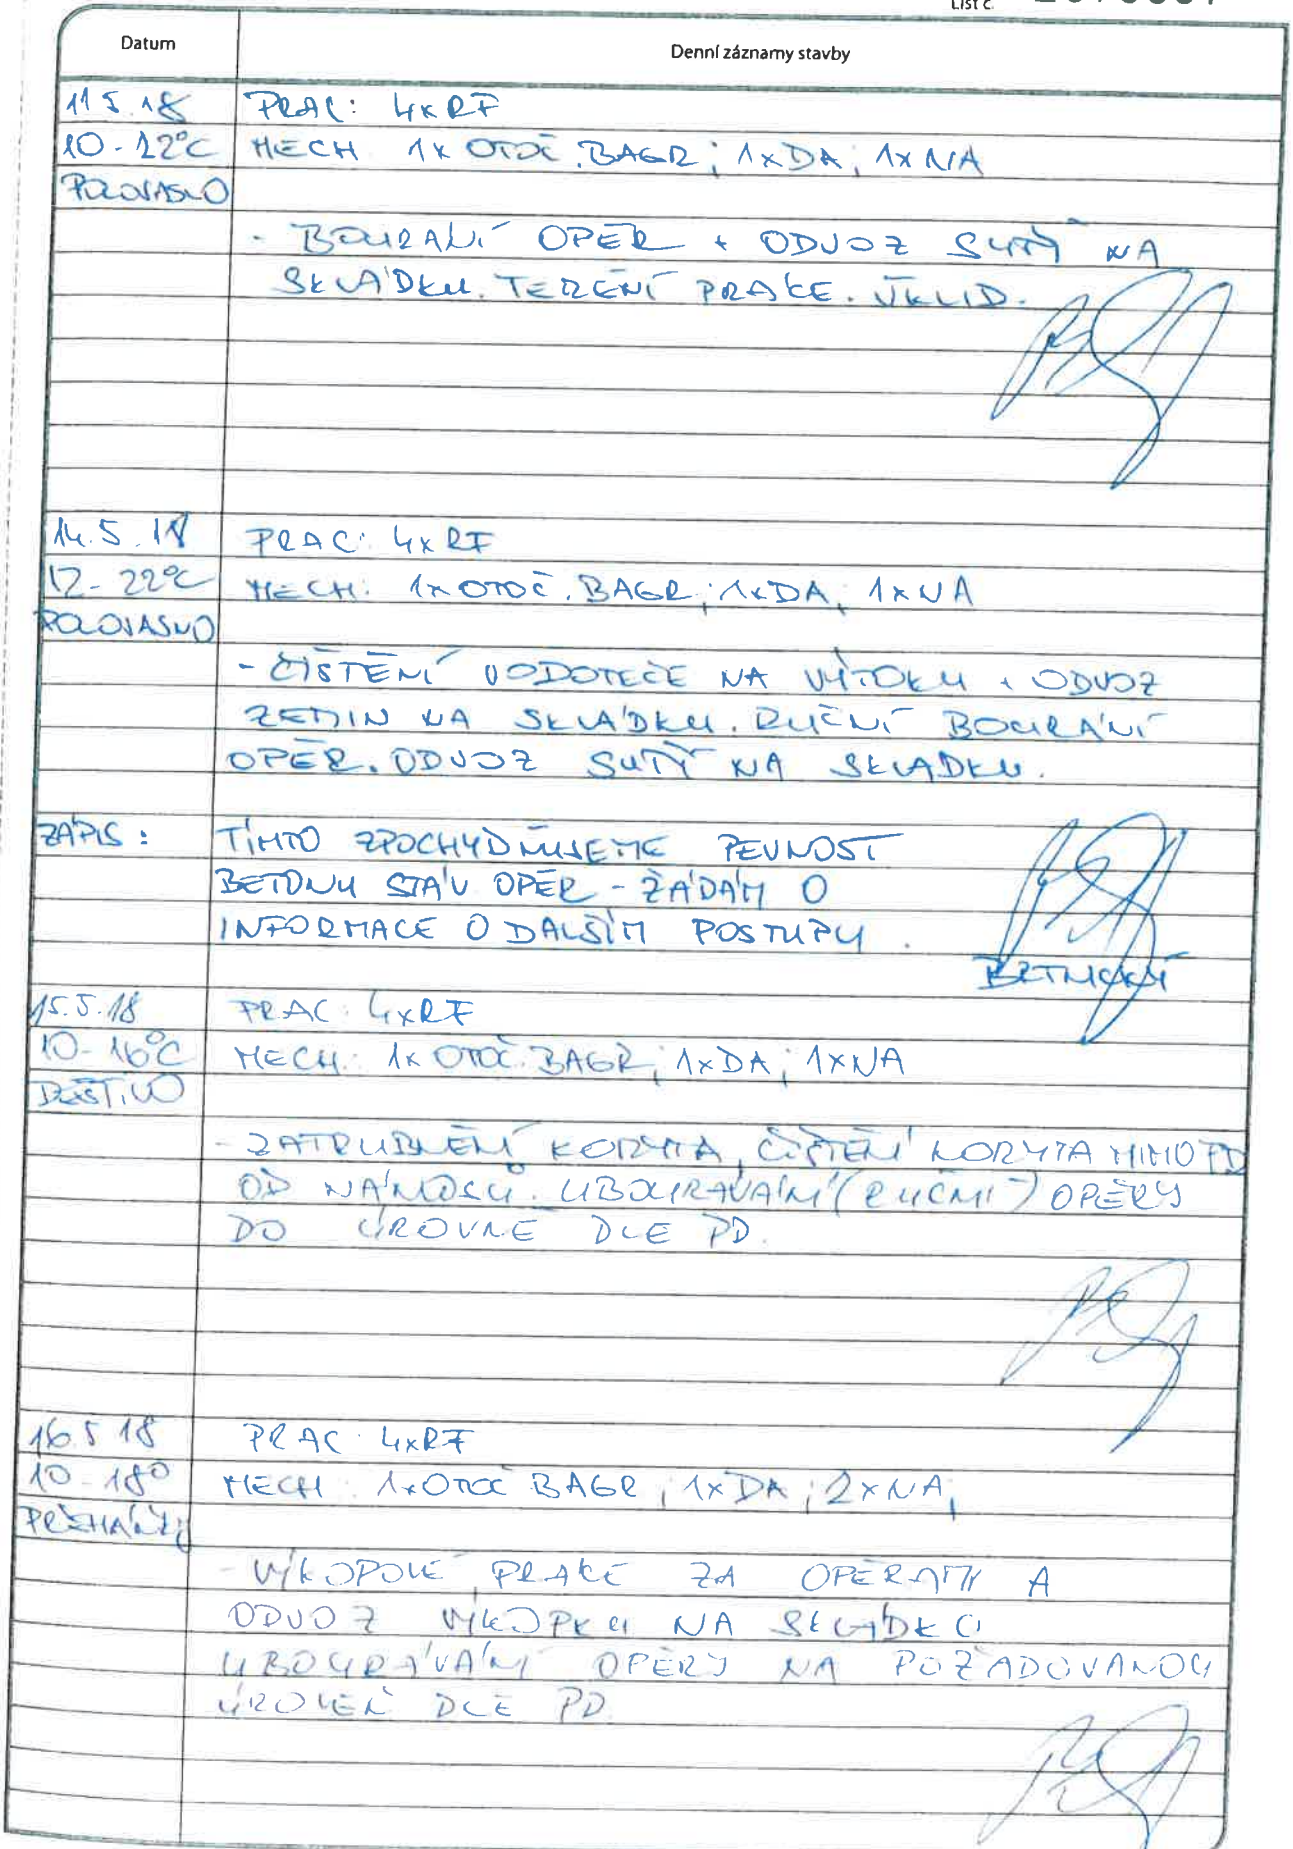 List č.
Datum
Denní záznamy stavby
11 5. 18 PRAC: 4xRF
10-22°C MECH 1x OTOČ. BAGR; 1xDA; 1xNA
POLOJASNO
- BOURÁNÍ OPĚR + ODVOZ SUTĚ NA
SKLÁDKU. TERÉNÍ PRÁCE. ÚKLID.
14.5.18 PRAC: 4xRF
12-22°C MECH: 1x OTOČ. BAGR; 1xDA; 1xNA
POLOJASNO
- ČIŠTĚNÍ VODOTEČE NA VÝTOKU + ODVOZ
ZEMIN NA SKLÁDKU. RUČNÍ BOURÁNÍ
OPĚR. ODVOZ SUTĚ NA SKLÁDKU.
ZÁPIS: TÍMTO ZPOCHYBŇUJEME PEVNOST
BETONU STÁV OPĚR - ŽÁDÁM O
INFORMACE O DALŠÍM POSTUPU.
15.5.18 PRAC: 4xRF
10-16°C MECH: 1x OTOČ. BAGR; 1xDA; 1xNA
DEŠTIVO
- ZATRUBNĚNÍ KORYTA, ČIŠTĚNÍ KORYTA MIMO PD
OD NÁNOSŮ. UBOURÁVÁNÍ (RUČNÍ) OPĚRY
DO ÚROVNĚ DLE PD.
16.5 18 PRAC: 4xRF
10-18° MECH: 1xOTOČ BAGR; 1xDA; 2xNA;
PŘEHÁŇKY
- VÝKOPOVÉ PRÁCE ZA OPĚRAMI A
ODVOZ VÝKOPKU NA SKLÁDKU
UBOURÁVÁNÍ OPĚRY NA POŽADOVANOU
ÚROVEŇ DLE PD.